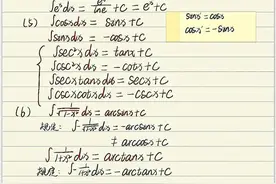 ∫eˣdx = eˣ/lne + C = eˣ + C
(5) ∫cosxdx = sinx + C
∫sinxdx = -cosx + C
sinx' = cosx
cosx' = -sinx
∫sec²xdx = tanx + C
∫csc²xdx = -cotx + C
∫secxtanxdx = secx + C
∫cscxcotxdx = -cscx + C
(6) ∫1/√(1-x²) dx = arcsinx + C
∫-1/√(1-x²) dx = -arcsinx + C
≠ arccosx + C
∫1/(1+x²) dx = arctanx + C
∫-1/(1+x²) dx = -arctanx + C